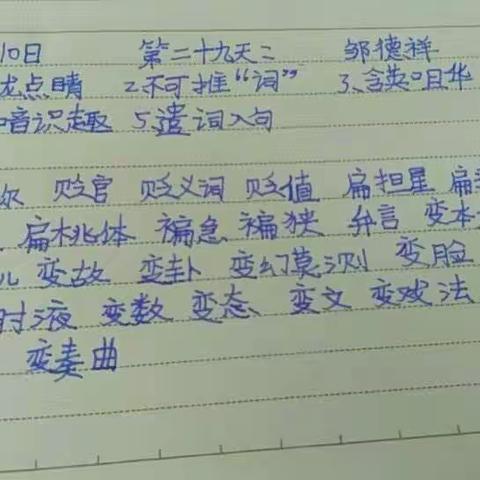 10日 第二十九天: 邹德祥
龙点睛 2.不可推“词” 3、含英咀华
音识趣 5、遣词入句
贬官 贬义词 贬值 扁担星 扁
扁桃体 褊急 褊狭 弁言 变本
儿 变故 变卦 变幻莫测 变脸
时液 变数 变态 变文 变戏法
变奏曲